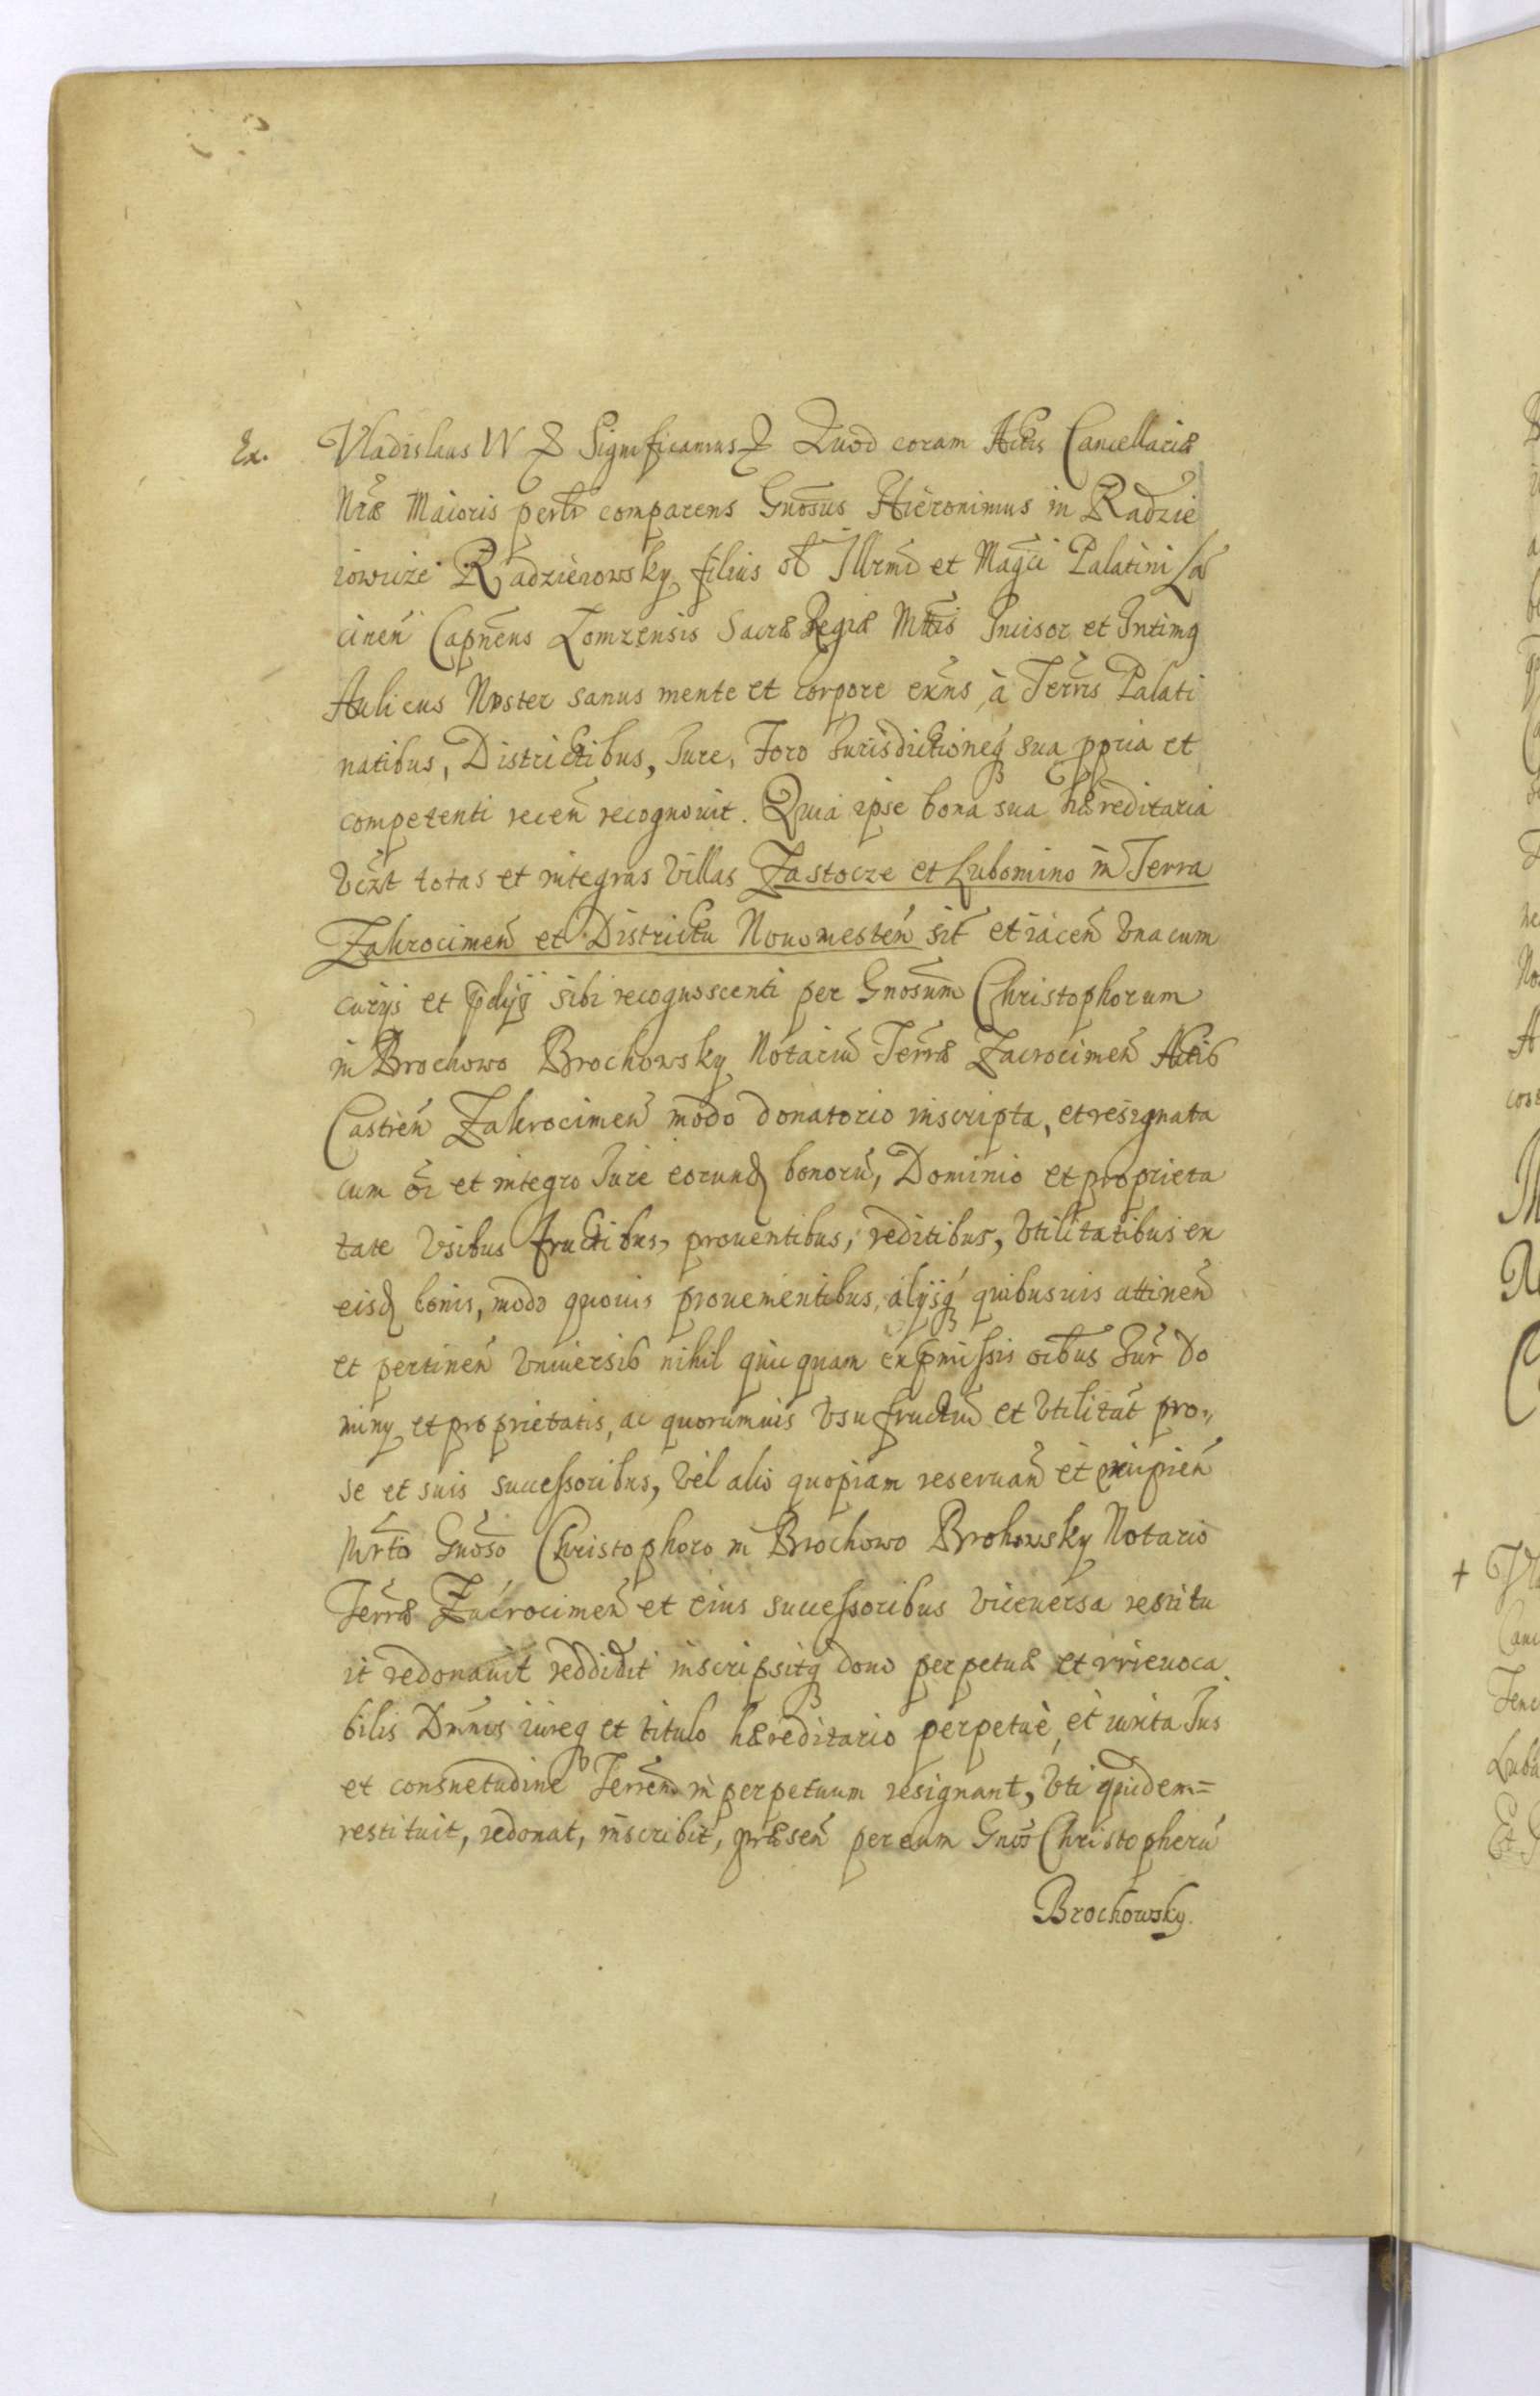 Ex.
Vladislaus IV Significamus Quod coram Actis Cancellariæ
Nræ Maioris perlr comparens Gnosus Hieronimus in Radzie
iowicze Radzieiowsky filius ol Illrmi et Magci Palatini Læ
cinen Capnens Lomzensis Sacræ Regiæ Mttis Incisor et Intimq
Aulicus Noster sanus mente et corpore exns, à Terris Palati
natibus, Districtibus, Jure, Foro Jurisdictioneq sua ppria et
competenti recen recognouit. Quia ipse bona sua hæreditaria
Vczt totas et integras Villas Zastocze et Lubomino in Terra
Zakrocimen et Districtu Nouomesten sit et iacen Vna cum
curijs et pdijs sibi recognoscenti per Gnosum Christophorum
in Brochowo Brochowsky Notariu Terræ Zacrocimen Actis
Castren Zakrocimen modo donatorio inscripta, et resignata
cum oi et integro Jure eorund bonoru, Dominio et proprieta
tate Vsibus fructibus, prouentibus, reditibus, Vtilitatibus ex
eisd bonis, modo quouis prouenientibus, alijsq quibusuis attinen
et pertinen Vniuersis nihil quicquam in pmissis oibus Jur Do
minij et proprietatis, ac quorumuis Vsufructuu et Vtilitat pro,,
se et suis successoribus, Vel alio quopiam reseruan et excipien
Mrto Gnoso Christophoro in Brochowo Brohowsky Notario
Terræ Zacrocimen et eius successoribus Viceuersa restitu
it redonauit reddidit inscripsitq dono perpetuæ et irreuoca
bilis Dnnis iureq et titulo hæreditario perpetuè, et iuxta Jus
et consuetudine Terren in perpetuum resignant, Vti quidem=
restituit, redonat, inscribit, præsen per eum Gnos Christopheru
Brochowsky.